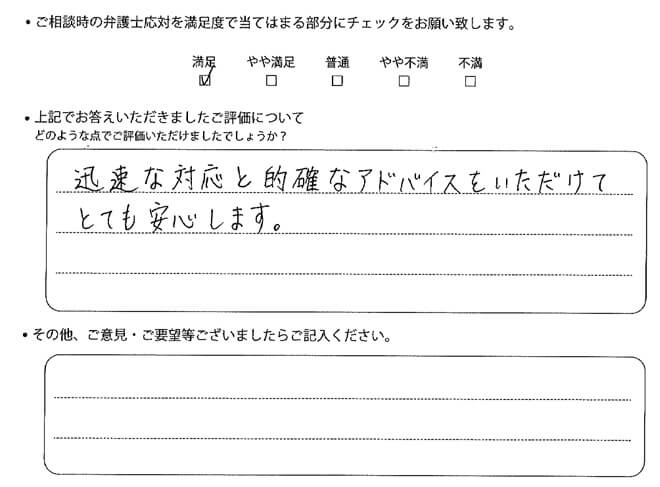 ・ご相談時の弁護士応対を満足度で当てはまる部分にチェックをお願い致します。
満足 やや満足 普通 やや不満 不満
☑ □ □ □ □
・上記でお答えいただきましたご評価について
どのような点でご評価いただけましたでしょうか？
迅速な対応と的確なアドバイスをいただけて
とても安心します。
・その他、ご意見・ご要望等ございましたらご記入ください。